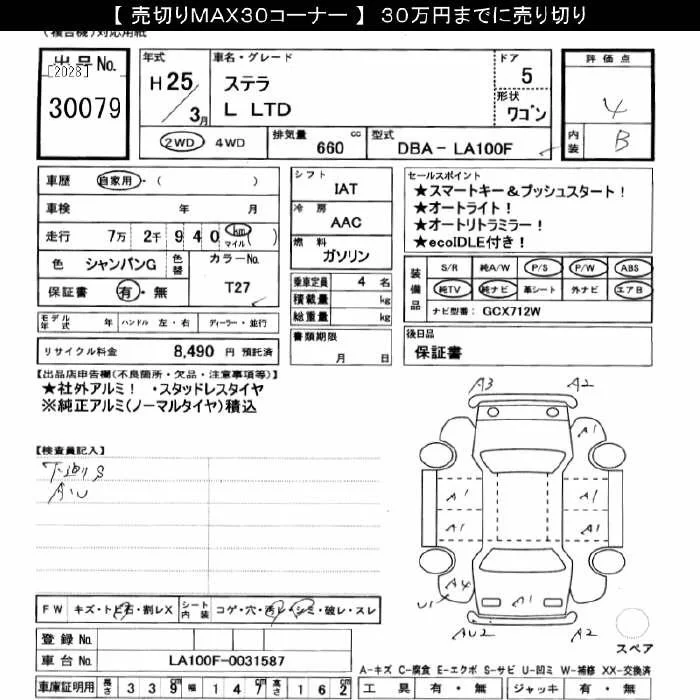 【 売切りMAX30コーナー 】 30万円までに売り切り
(複合機)対応用紙
出品No.
[2028]
30079
年式
H25/3月
車名・グレード
ステラ
L LTD
ドア
5
形状
ワゴン
評価点
4
内装
B
2WD ・ 4WD
排気量
660 cc
型式
DBA - LA100F
車歴 自家用・( )
車検 年 月
走行 7万 2千 9 4 0 km マイル ( )
色 シャンパンG 色替
カラーNo.
T27
保証書 有・無
モデル年式 年 ハンドル 左・右 ディーラー・並行
リサイクル料金 8,490 円 預託済
シフト
IAT
冷房
AAC
燃料
ガソリン
乗車定員 4 名
積載量 kg
総重量 kg
書類期限
月 日
セールスポイント
★スマートキー＆プッシュスタート！
★オートライト！
★オートリトラミラー！
★ecoIDLE付き！
装備品
S/R 純A/W P/S P/W ABS
純TV 純ナビ 革シート 外ナビ エアB
ナビ型番: GCX712W
後日品
保証書
【出品店申告欄(不良箇所・欠品・注意事項等)】
★社外アルミ！ ・スタッドレスタイヤ
※純正アルミ(ノーマルタイヤ)積込
【検査員記入】
A3 A2
A1
A1 A1
A1 A1
A4 A1
U1
AU2 A2
スペア
FW キズ・トビ石・割レX
シート内装 コゲ・穴・汚レ・シミ・破レ・スレ
登録No.
車台No. LA100F-0031587
車庫証明用 長さ 339cm 幅 147cm 高さ 162cm
A-キズ C-腐食 E-エクボ S-サビ U-凹ミ W-補修 XX-交換済
工具 有・無 ジャッキ 有・無